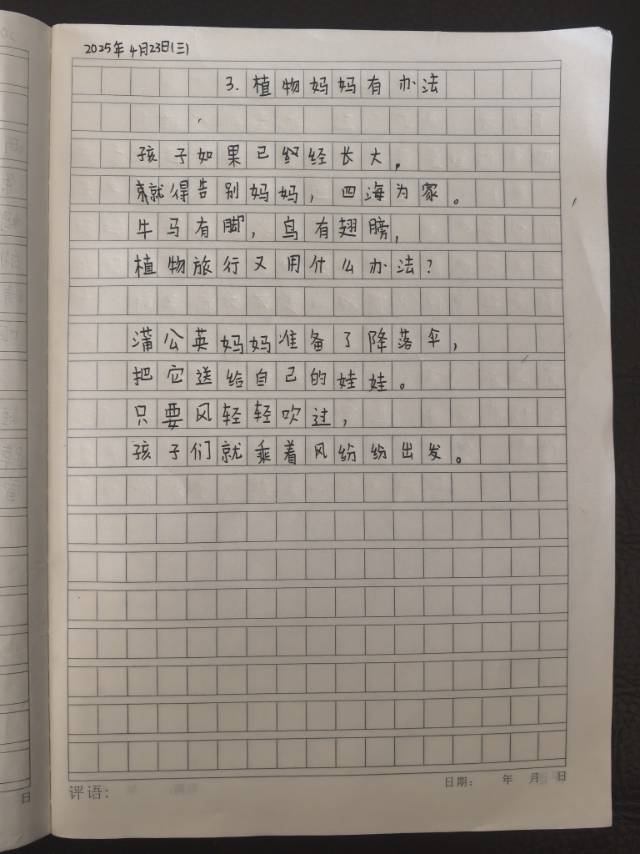 2025年4月23日(三)
3.植物妈妈有办法
孩子如果已经长大,
就得告别妈妈,四海为家。
牛马有脚,鸟有翅膀,
植物旅行又用什么办法?
蒲公英妈妈准备了降落伞,
把它送给自己的娃娃。
只要风轻轻吹过,
孩子们就乘着风纷纷出发。
评语:
日期: 年 月 日
日